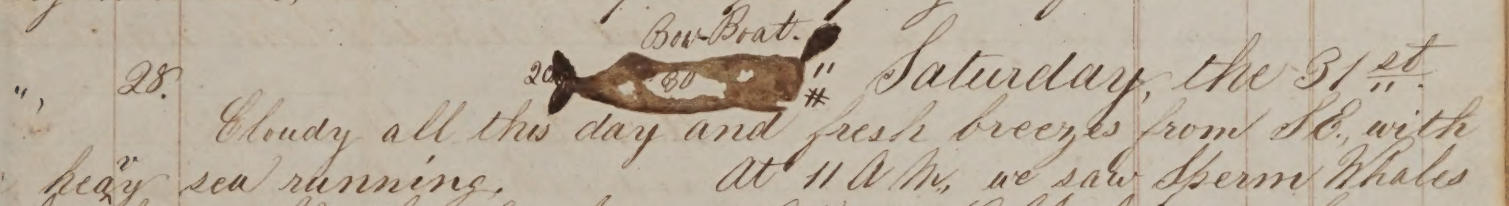 Bow-Boat.
" 28. 20 80 " # Saturday, the 31st.
Cloudy all this day and fresh breezes from SE., with
heavy sea running. At 11 A M., we saw Sperm Whales